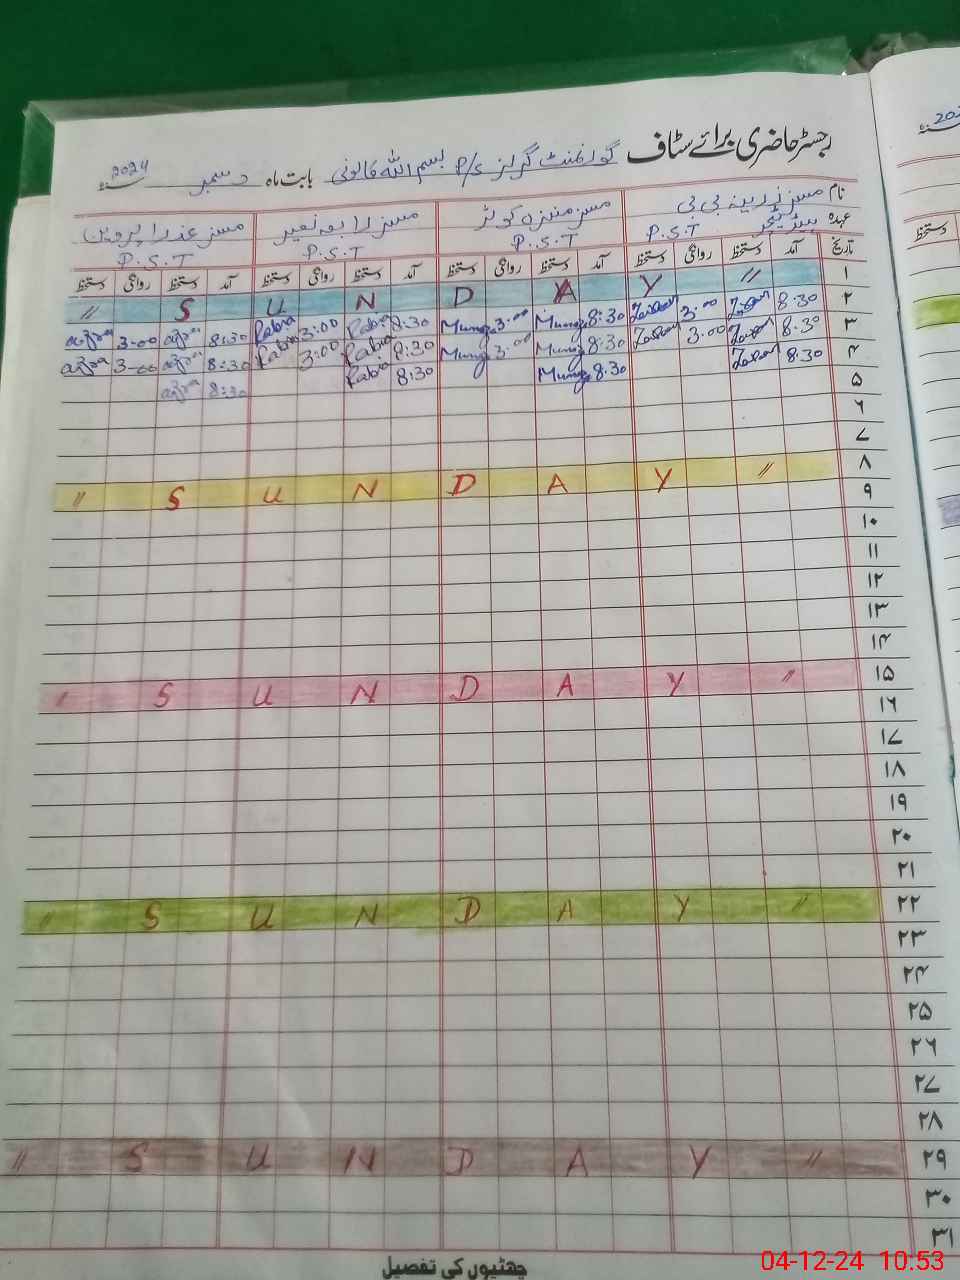 رجسٹر حاضری برائے سٹاف گورنمنٹ گرلز P/S بسم اللہ کالونی بابت ماہ دسمبر 2024
نام مسز زرینہ بی بی مسز منیزہ کوثر مسز رابعہ نصیر مسز عذرا پروین
عہدہ ہیڈ ٹیچر P.S.T P.S.T P.S.T P.S.T
تاریخ آمد دستخط روانگی دستخط آمد دستخط روانگی دستخط آمد دستخط روانگی دستخط آمد دستخط روانگی دستخط
۱ " S U N D A Y "
۲ 8:30 3:00 8:30 Mung 3:00 Mung 8:30 Rabia 3:00 Rabia 8:30 3:00
۳ 8:30 3:00 8:30 Mung 3:00 Mung 8:30 Rabia 3:00 Rabia 8:30 3:00
۴ 8:30 8:30 Mung 8:30 Rabia 8:30
۵
۶
۷
۸ " S U N D A Y "
۹
۱۰
۱۱
۱۲
۱۳
۱۴
۱۵ " S U N D A Y "
۱۶
۱۷
۱۸
۱۹
۲۰
۲۱
۲۲ " S U N D A Y "
۲۳
۲۴
۲۵
۲۶
۲۷
۲۸
۲۹ " S U N D A Y "
۳۰
۳۱
چھٹیوں کی تفصیل
04-12-24 10:53